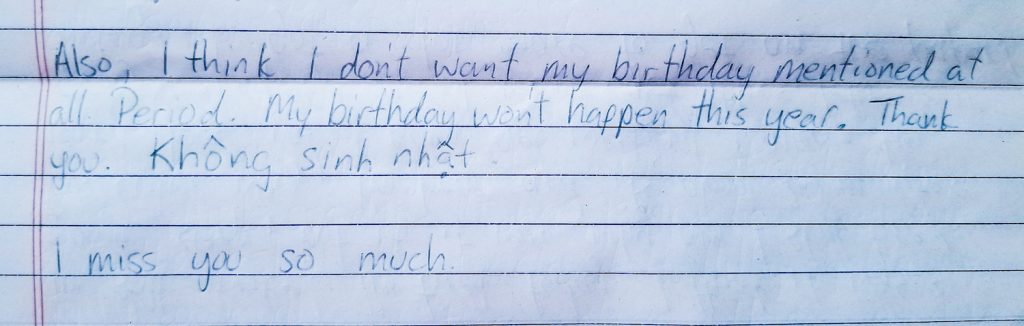 Also, I think I don't want my birthday mentioned at
all. Period. My birthday won't happen this year. Thank
you. Không sinh nhật.
I miss you so much.